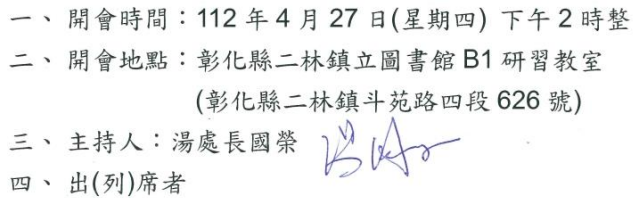 一、 開會時間：112 年 4 月 27 日(星期四) 下午 2 時整
二、 開會地點：彰化縣二林鎮立圖書館 B1 研習教室
(彰化縣二林鎮斗苑路四段 626 號)
三、 主持人：湯處長國榮
四、 出(列)席者